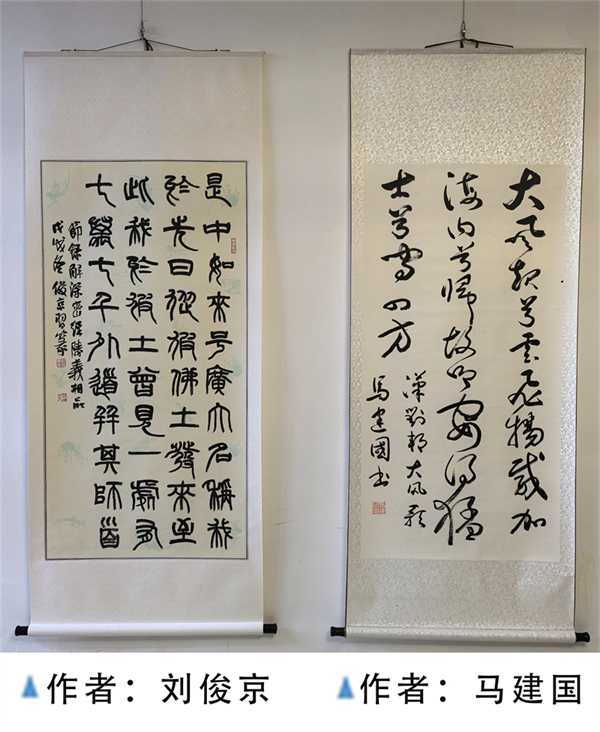 是中如来号廣大名稱我
於先日從彼佛土發来至
此我於彼土曾見一處有
七萬七千外道并其師首
節録解深密經勝義相品
戊戌冬俊京習篆
大風起兮雲飛揚威加
海内兮歸故鄉安得猛
士兮守四方
漢劉邦大風歌
馬建國书
作者：刘俊京
作者：马建国